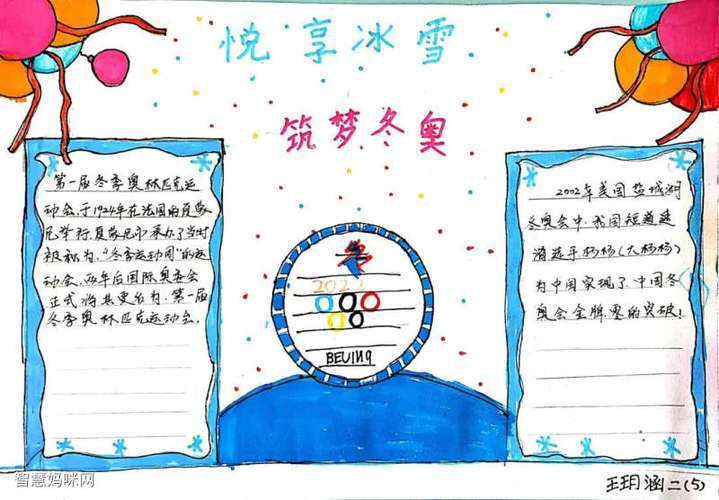 悦享冰雪
筑梦冬奥
第一届冬季奥林匹克运
动会,于1924年在法国的夏蒙
尼举行,夏蒙尼市承办了当时
被称为:"冬季运动周"的运
动会,两年后国际奥委会
正式将其更名为:第一届
冬季奥林匹克运动会.
2022
BEIJING
2002年美国盐城湖
冬奥会中,我国短道速
滑选手杨杨(大杨杨)
为中国实现了中国冬
奥会金牌零的突破!
智慧妈咪网
王玥涵二(5)